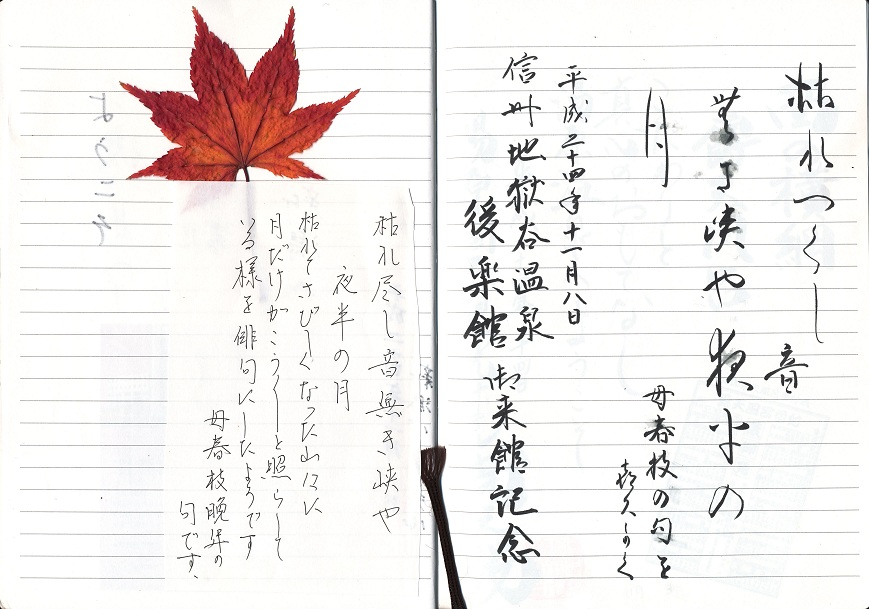 枯れつくし音
無き峡や夜半の
月
母春枝の句を
平成二十四年十一月八日
信州地獄谷温泉
後楽館
御来館記念
枯れ尽し音無き峡や
夜半の月
枯れてさびしくなった山
月だけがこう〱と照らして
いる様を俳句にしたようです
母春枝晩年の
句です、